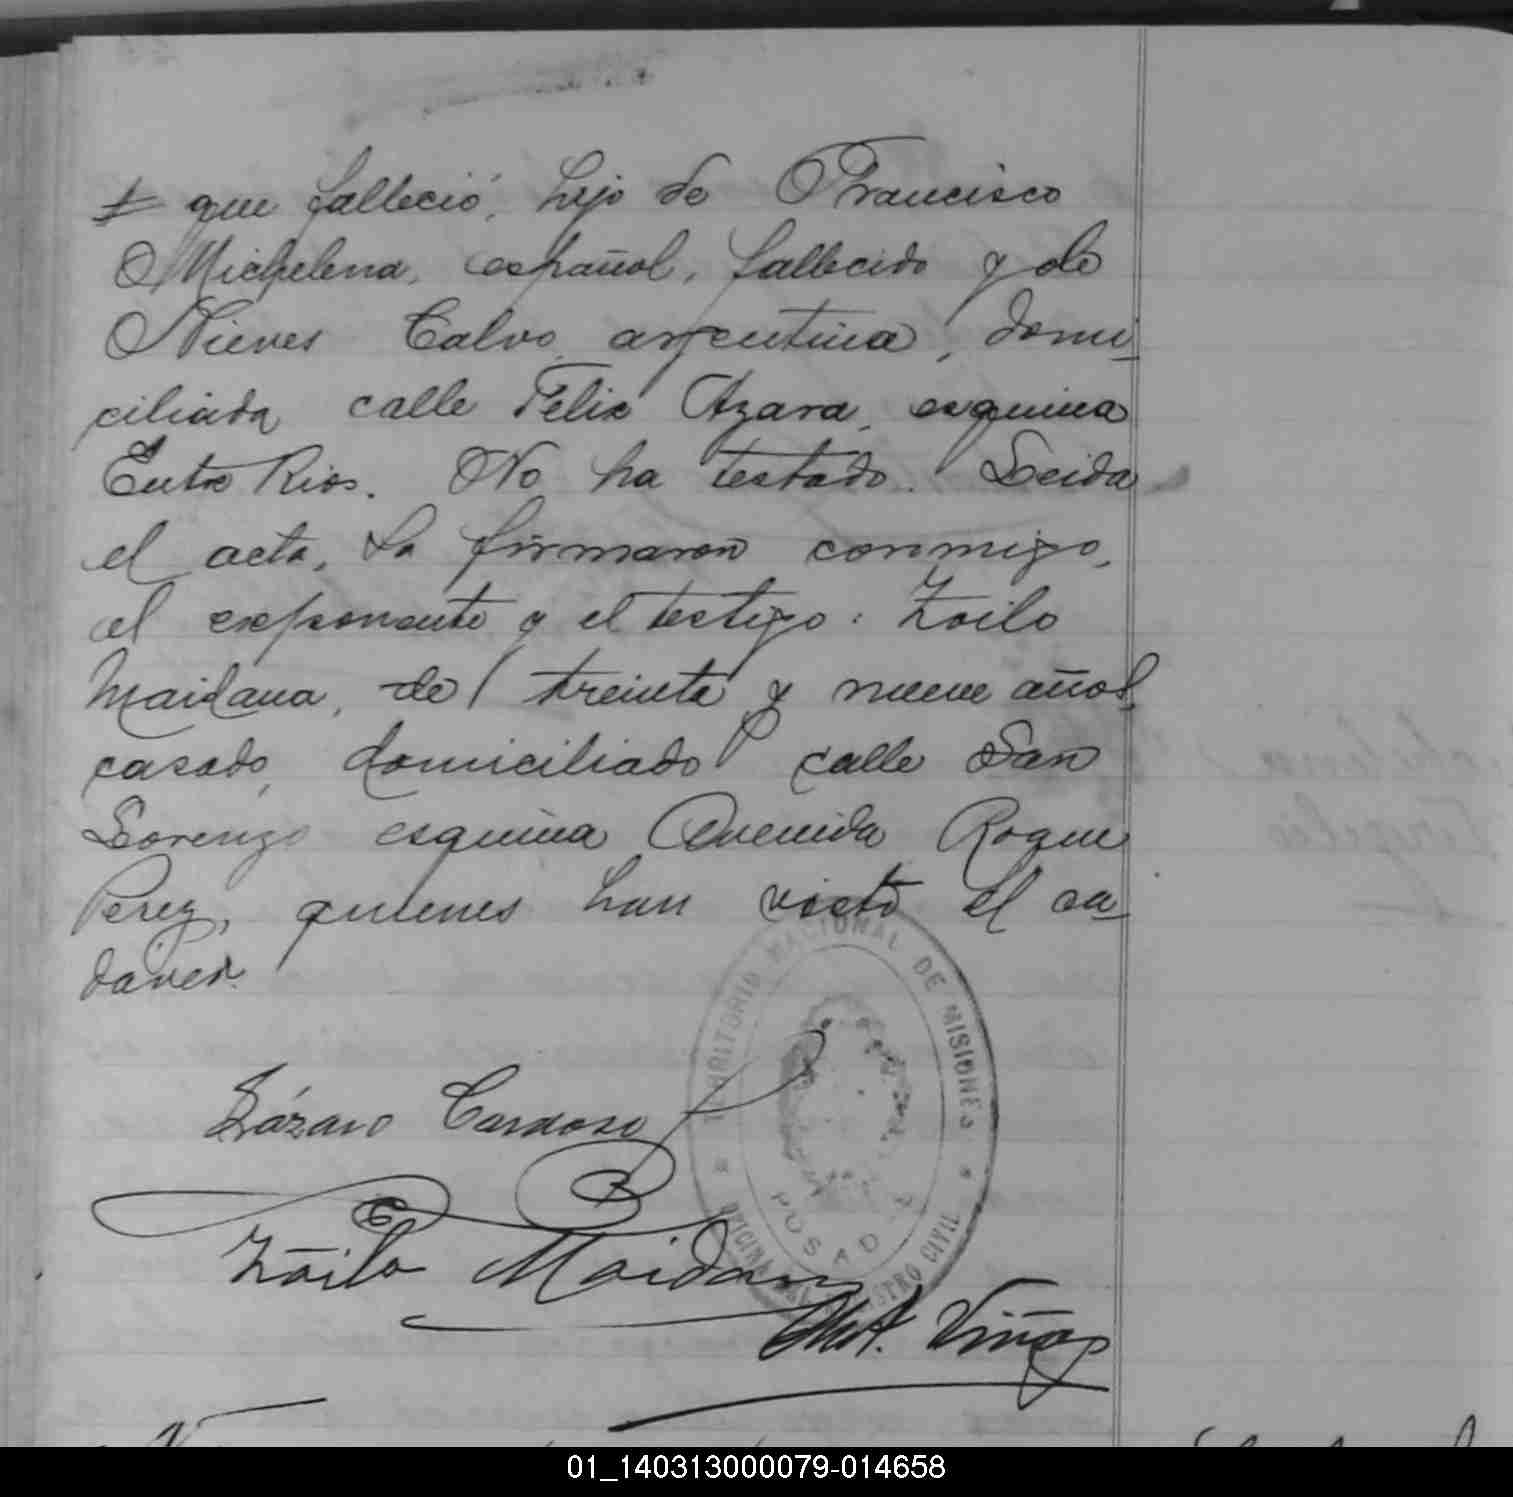 que falleció, hijo de Francisco
Michelena, español, fallecido y de
Nieves Calvo, argentina, domi-
ciliada calle Felix Azara, esquina
Entre Rios. No ha testado. Leida
el acta, la firmaron conmigo,
el exponente y el testigo: Zoilo
Maidana, de treinta y nueve años,
casado, domiciliado calle San
Lorenzo esquina Avenida Roque
Perez, quienes han visto el ca-
daver.
TERRITORIO NACIONAL DE MISIONES
Lázaro Cardoso
POSADAS
OFICINA DEL REGISTRO CIVIL
Zoilo Maidana
M.A. Viñas
01_140313000079-014658